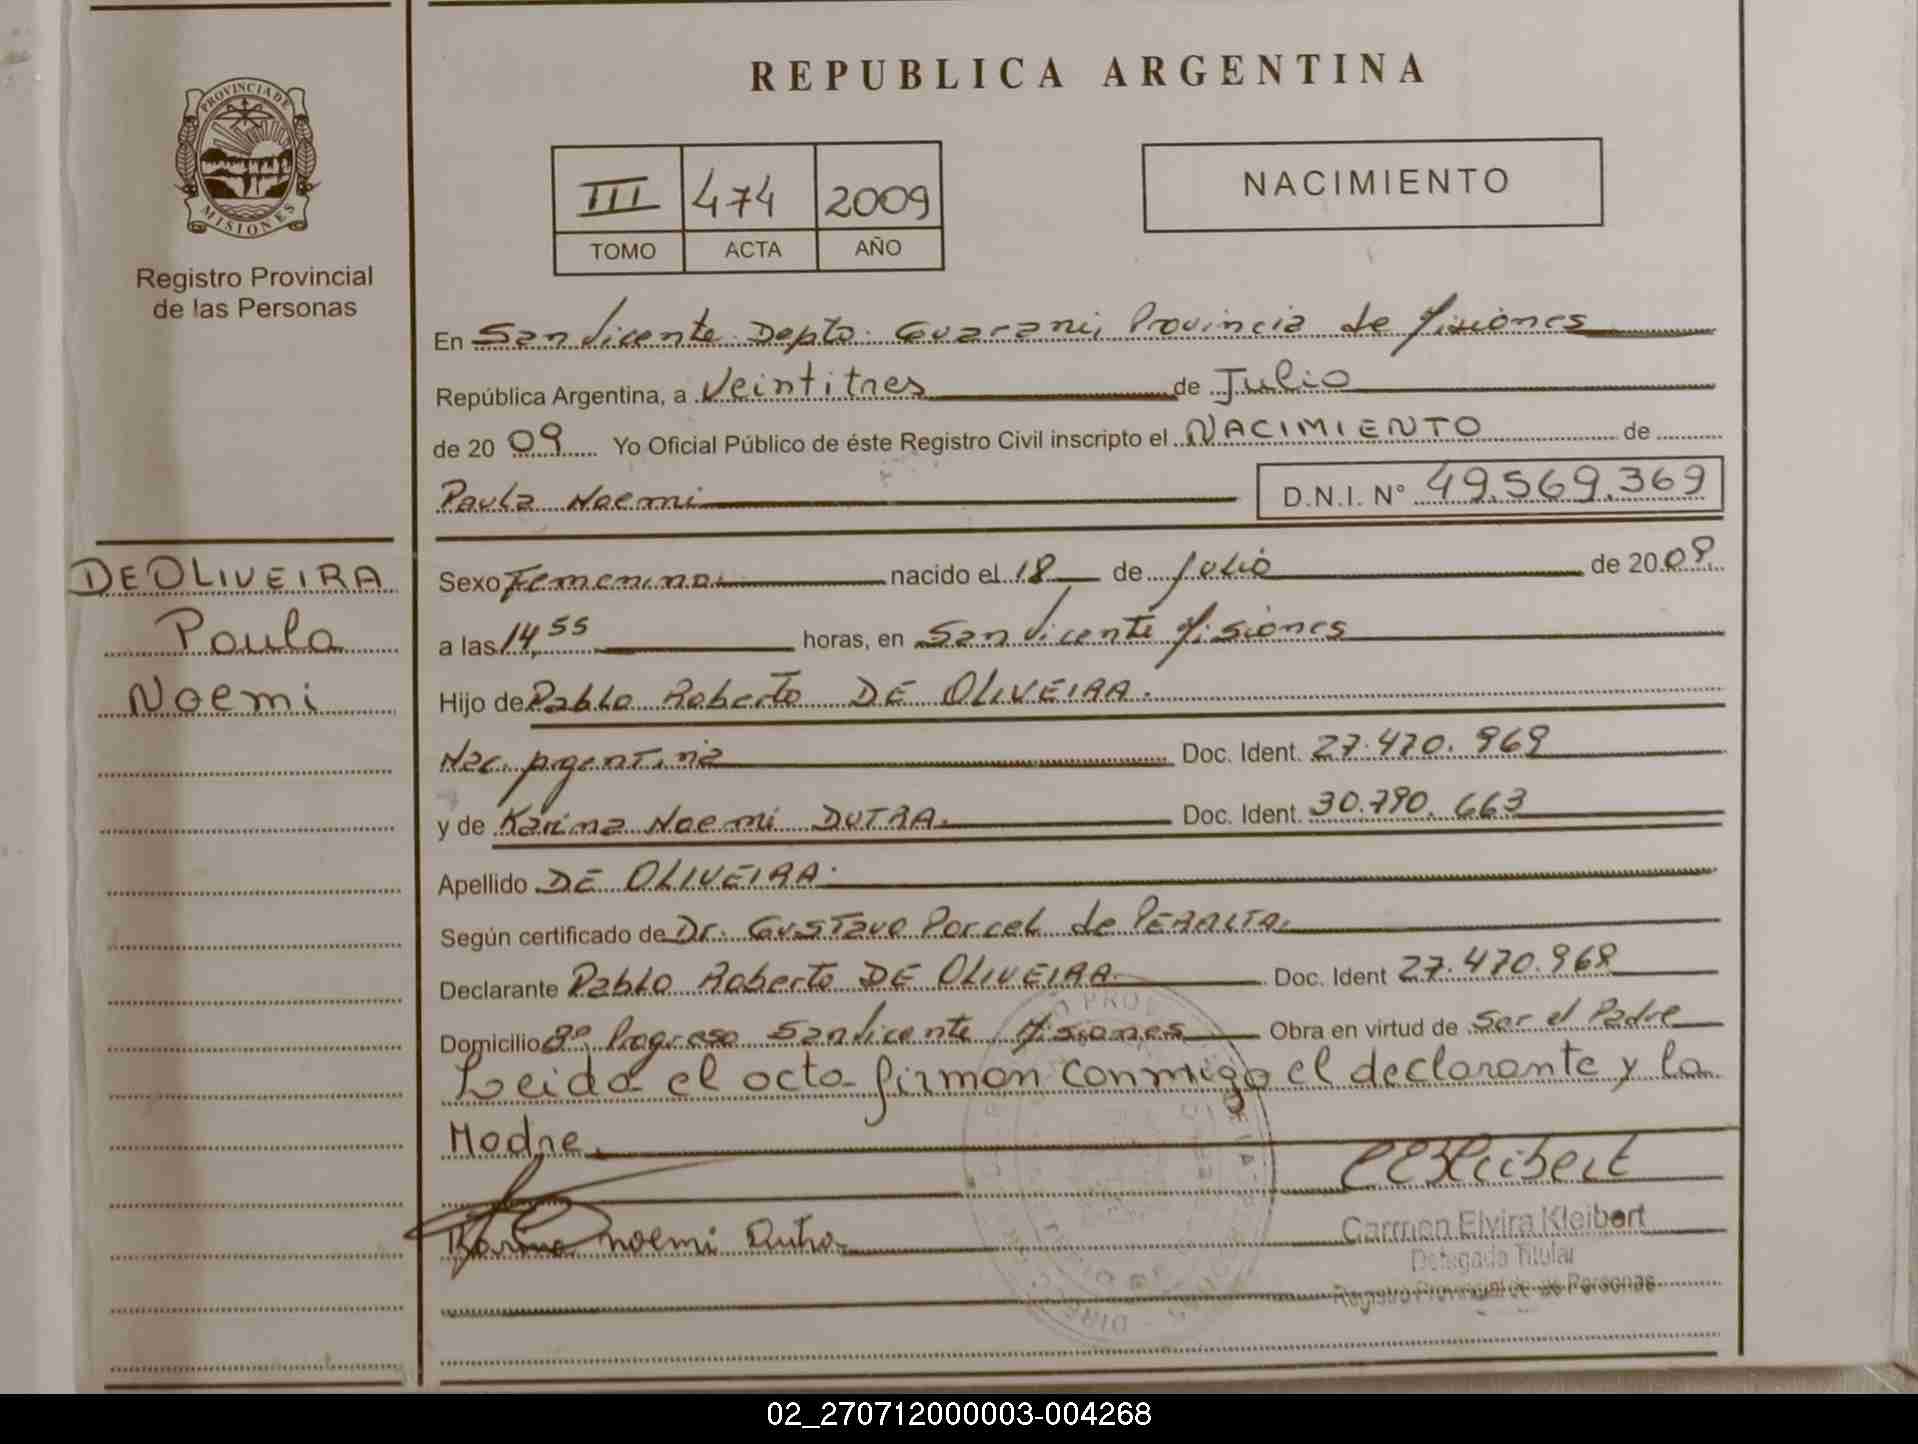 PROVINCIA DE
MISIONES
Registro Provincial
de las Personas
REPUBLICA ARGENTINA
III 474 2009
TOMO ACTA AÑO
NACIMIENTO
En San Vicente Depto. Guarani, Provincia de Misiones
República Argentina, a Veintitres de Julio
de 20 09 Yo Oficial Público de éste Registro Civil inscripto el NACIMIENTO de
Paula Noemi
D.N.I. N° 49.569.369
DE OLIVEIRA
Paula
Noemi
Sexo Femenino. nacido el 18 de Julio de 20 09.
a las 14,55 horas, en San Vicente Misiones
Hijo de Pablo Roberto DE OLIVEIRA.
Nac. Argentina Doc. Ident. 27.470.969
y de Karina Noemi DUTRA. Doc. Ident. 30.790.663
Apellido DE OLIVEIRA.
Según certificado de Dr. Gustavo Porcel de PERALTA.
Declarante Pablo Roberto DE OLIVEIRA Doc. Ident 27.470.969
Domicilio Bº Progreso San Vicente Misiones Obra en virtud de Ser el Padre
Leida el acta firman conmigo el declarante y la
Madre.
Karina Noemi Dutra
Carmen Elvira Kleibert
Delegada Titular
Registro Provincial de las Personas
02_270712000003-004268